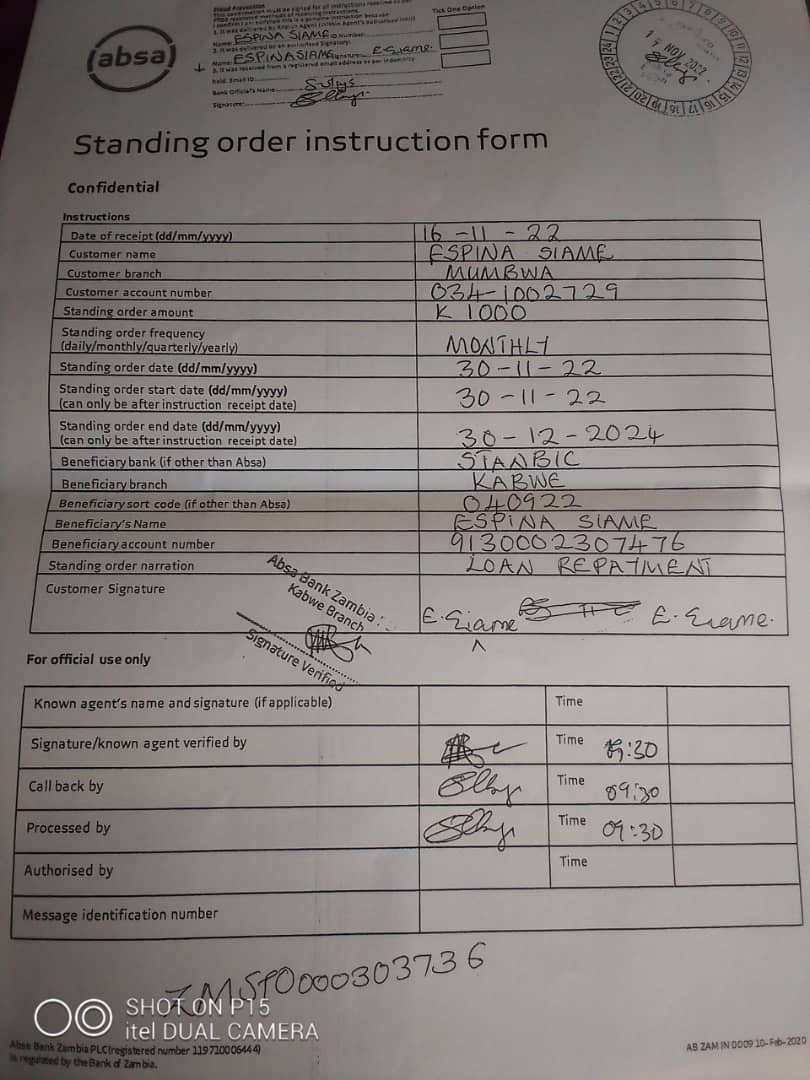 (absa)
Fraud Prevention
This confirmation must be signed for all instructions received
Tick One Option
Name: ESPINA SIAME ID Number
2. It was delivered by an authorised signatory:
Name: ESPINA SIAME Signature E-Siame.
3. It was received from a registered email address as per indemnity
held. Email ID:
Bank Official's Name:
Signature:
NOV 2022
Standing order instruction form
Confidential
Instructions
Date of receipt (dd/mm/yyyy) 16-11-22
Customer name ESPINA SIAME
Customer branch MUMBWA
Customer account number 034-1002729
Standing order amount K 1000
Standing order frequency
(daily/monthly/quarterly/yearly) MONTHLY
Standing order date (dd/mm/yyyy) 30-11-22
Standing order start date (dd/mm/yyyy)
(can only be after instruction receipt date) 30-11-22
Standing order end date (dd/mm/yyyy)
(can only be after instruction receipt date) 30-12-2024
Beneficiary bank (if other than Absa) STANBIC
Beneficiary branch KABWE
Beneficiary sort code (if other than Absa) 040922
Beneficiary's Name ESPINA SIAME
Beneficiary account number 9130002307476
Standing order narration LOAN REPAYMENT
Customer Signature E. Siame E. Siame.
Absa Bank Zambia
Kabwe Branch
Signature Verified
For official use only
Known agent's name and signature (if applicable) Time
Signature/known agent verified by Time :30
Call back by Time 09:30
Processed by Time 09:30
Authorised by Time
Message identification number
ZMSTO000303736
SHOT ON P15
itel DUAL CAMERA
Absa Bank Zambia PLC (registered number 119710006444)
is regulated by the Bank of Zambia.
AB ZAM IN 0009 10-Feb-2020